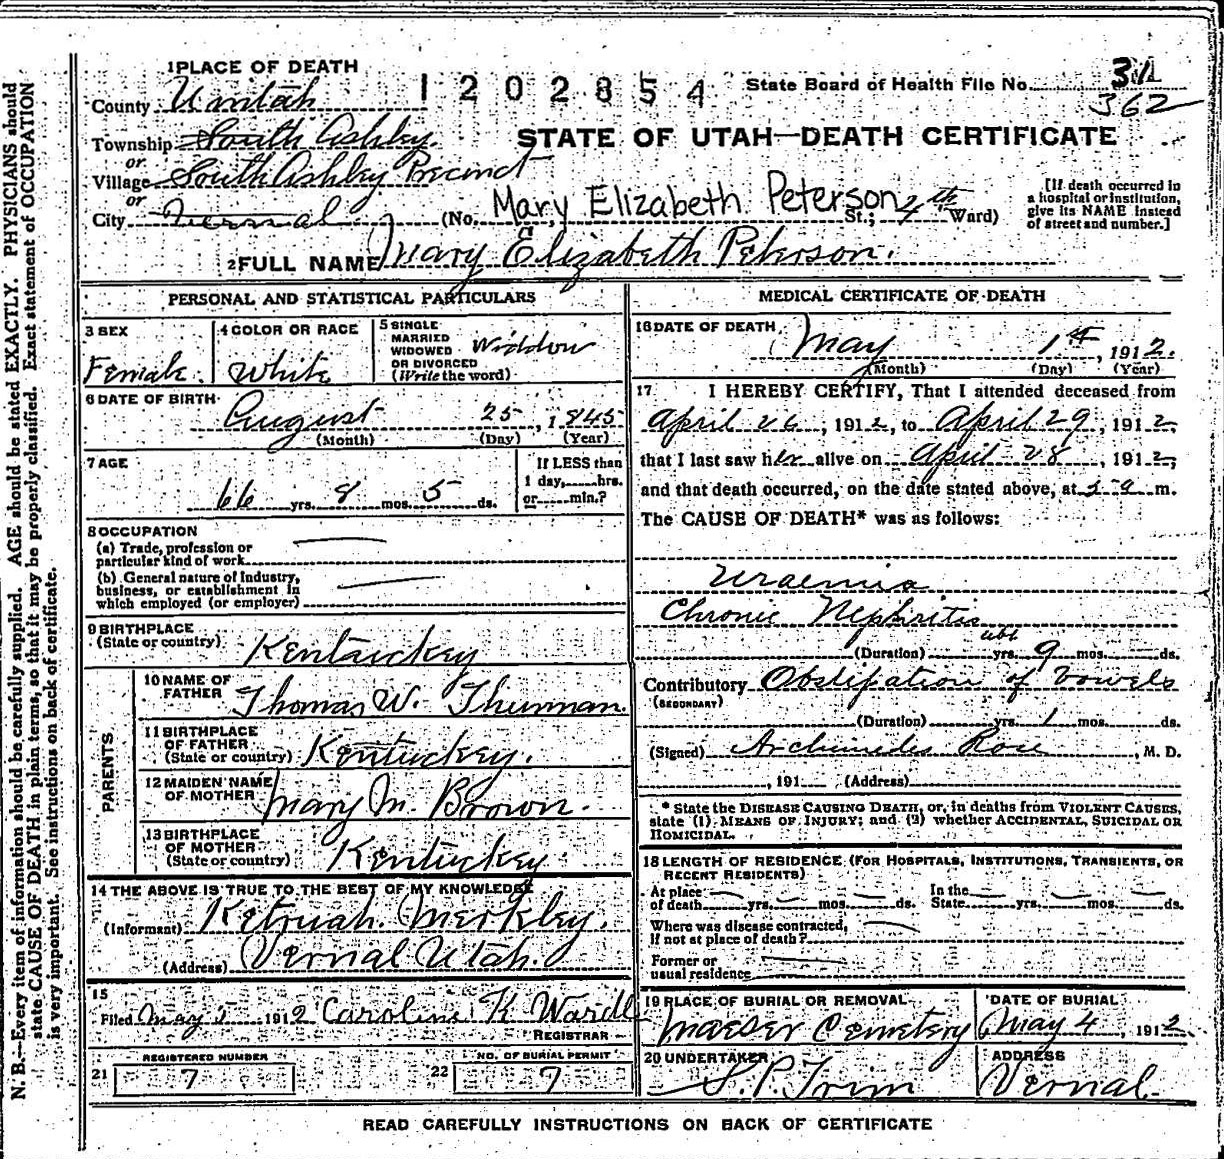 1 PLACE OF DEATH
County Uintah
1202854
State Board of Health File No. 31
362
Township South Ashley
STATE OF UTAH—DEATH CERTIFICATE
or
Village South Ashley Precinct
or
City Vernal (No. Mary Elizabeth Peterson St.; 4th Ward)
[If death occurred in
a hospital or institution,
give its NAME instead
of street and number.]
2 FULL NAME Mary Elizabeth Peterson.
PERSONAL AND STATISTICAL PARTICULARS
3 SEX
Female
4 COLOR OR RACE
White
5 SINGLE
MARRIED
WIDOWED
OR DIVORCED
(Write the word)
Widdow
6 DATE OF BIRTH
August 25, 1845
(Month) (Day) (Year)
7 AGE
66 yrs. 8 mos. 5 ds.
If LESS than
1 day,......hrs.
or......min.?
8 OCCUPATION
(a) Trade, profession or
particular kind of work
(b) General nature of Industry,
business, or establishment in
which employed (or employer)
9 BIRTHPLACE
(State or country)
Kentuckey
PARENTS
10 NAME OF
FATHER
Thomas W. Thurman.
11 BIRTHPLACE
OF FATHER
(State or country)
Kentuckey.
12 MAIDEN NAME
OF MOTHER
Mary M. Brown.
13 BIRTHPLACE
OF MOTHER
(State or country)
Kentuckey
14 THE ABOVE IS TRUE TO THE BEST OF MY KNOWLEDGE
(Informant) Ketruah Merkley.
(Address) Vernal Utah.
15
Filed May 5 1912 Caroline K Wardle
REGISTRAR
REGISTERED NUMBER
21 7
NO. OF BURIAL PERMIT
22 7
MEDICAL CERTIFICATE OF DEATH
16 DATE OF DEATH
May 1st, 1912.
(Month) (Day) (Year)
17 I HEREBY CERTIFY, That I attended deceased from
April 26, 1912, to April 29, 1912,
that I last saw her alive on April 28, 1912,
and that death occurred, on the date stated above, at m.
The CAUSE OF DEATH* was as follows:
Uraemia
Chronic Nephritis
(Duration) abt yrs. 9 mos. ds.
Contributory Obstipation of Bowels
(SECONDARY)
(Duration) yrs. 1 mos. ds.
(Signed) Archimedes Rose, M. D.
, 191 (Address)
* State the DISEASE CAUSING DEATH, or, in deaths from VIOLENT CAUSES,
state (1) MEANS OF INJURY; and (2) whether ACCIDENTAL, SUICIDAL OR
HOMICIDAL.
18 LENGTH OF RESIDENCE (FOR HOSPITALS, INSTITUTIONS, TRANSIENTS, OR
RECENT RESIDENTS)
At place
of death yrs. mos. ds.
In the
State yrs. mos. ds.
Where was disease contracted,
If not at place of death?
Former or
usual residence
19 PLACE OF BURIAL OR REMOVAL
Maeser Cemetery
DATE OF BURIAL
May 4, 1912.
20 UNDERTAKER
S. P. Trim
ADDRESS
Vernal.
READ CAREFULLY INSTRUCTIONS ON BACK OF CERTIFICATE
N. B.—Every item of information should be carefully supplied. AGE should be stated EXACTLY. PHYSICIANS should
state CAUSE OF DEATH in plain terms, so that it may be properly classified. Exact statement of OCCUPATION
is very important. See instructions on back of certificate.